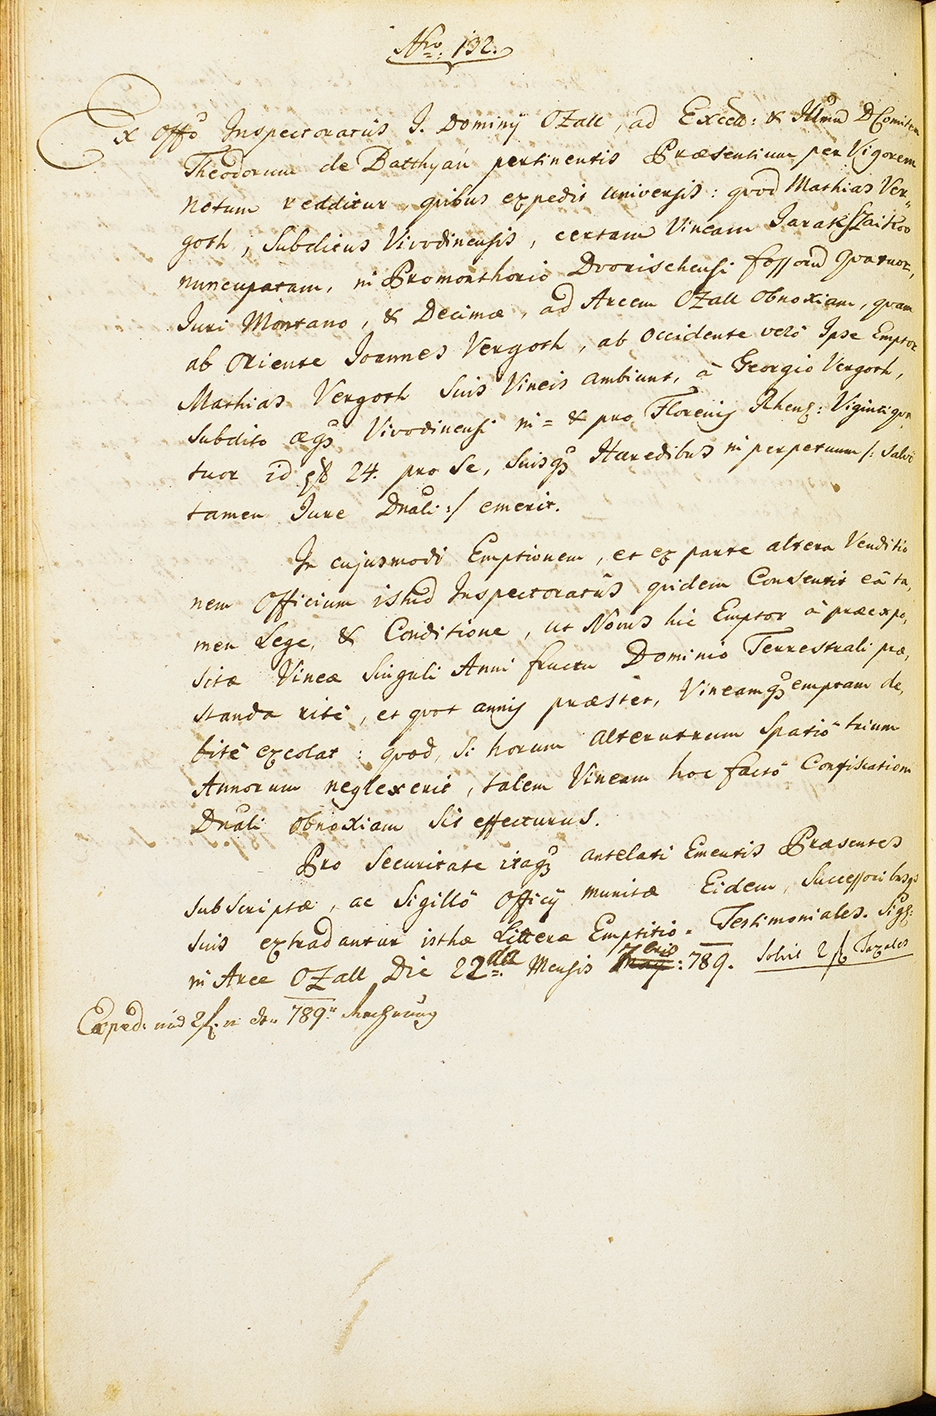 Nro: 132.
Ex Offõ Inspectoratûs I. Dominÿ OZall, ad Excell: & Illmũ D Comitem
Theodorum de Batthyán pertinentis Præsentium per Vigorem
notum redditur, quibus expedit universis: quod Mathias Ver„
goth, Subditus Vivodinensis, certam Vineam
nuncupatam, in Promonthorio Dvorischensi fossorũ quatuor,
Iuri Montano, & Decimæ, ad Arcem OZall obnoxiam, quam
ab Oriente Joannes Vergoth, ab occidente verò Ipse Emptor
Mathias Vergoth suis Vineis ambiunt, à Georgio Vergoth,
Subdito æqȝ Vivodinensi in = & pro Florenis Rhenȝ: Vigintiqua
tuor id 24. pro se, suisqȝ Hæredibus in perpetuum /: salvo
tamen Jure Dnãli :/ emerit.
In cujusmodi Emptionem, et ex parte altera Venditio
nem Officium isthũd Inspectoratûs quidem Consentit eâ ta„
men Lege, & Conditione, ut Novus hic Emptor à præexpo„
sitæ Vineæ singuli Anni fructu Dominio Terrestrali præ„
standa ritè, et quot annis præstet, Vineamqȝ emptam de„
bitè excolat: quod, si horum alterutrum spatiô trium
Annorum neglexerit, talem Vineam hoc factô Confiscationi
Dnãli obnoxiam sit effecturus.
Pro Securitate itaqȝ antelati Ementis Præsentes
subscriptæ, ac Sigillô Officÿ munitæ Eidem, Successoribusqȝ
suis extradantur isthæ Litteræ Emptitio - Testimoniales. Sigȝ:
in Arce OZall Die 22da Mensis 7bris : 789. Solvit 2 f Taxales
Exped: und 2 f. in der 789er Rechnung